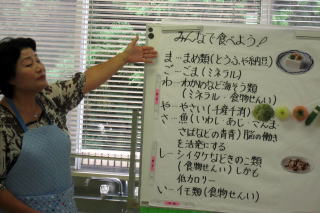 みんなで食べよう!
ま…まめ類(とうふや納豆)
ご…ごま(ミネラル)
わ…わかめなど海そう類
(ミネラル・食物せんい)
や…やさい(千産千消)
さ…魚(いわし あじ さんま
さばなどの青背)脳の働き
を活発にする
し…シイタケなどきのこ類
(食物せんい)しかも
低カロリー
い…イモ類(食物せんい)